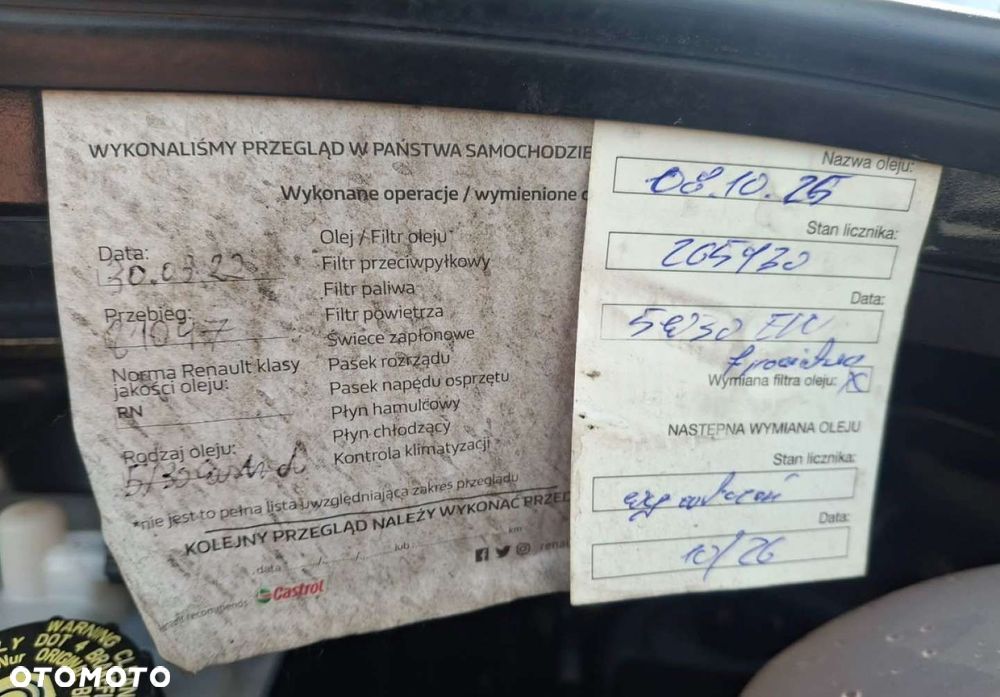 WYKONALIŚMY PRZEGLĄD W PAŃSTWA SAMOCHODZIE
Wykonane operacje / wymienione
Data:
30.03.23
Przebieg:
Norma Renault klasy
jakości oleju:
RN
Rodzaj oleju:
5/30
Olej / Filtr oleju*
Filtr przeciwpyłkowy
Filtr paliwa
Filtr powietrza
Świece zapłonowe
Pasek rozrządu
Pasek napędu osprzętu
Płyn hamulcowy
Płyn chłodzący
Kontrola klimatyzacji
*nie jest to pełna lista uwzględniająca zakres przeglądu
KOLEJNY PRZEGLĄD NALEŻY WYKONAĆ PRZED
data ....../....../...... lub ............ km
Castrol
Nazwa oleju:
08.10.25
Stan licznika:
205930
Data:
5W30
Wymiana filtra oleju: X
NASTĘPNA WYMIANA OLEJU
Stan licznika:
Data:
10/26
WARNING
DOT 4
OTOMOTO